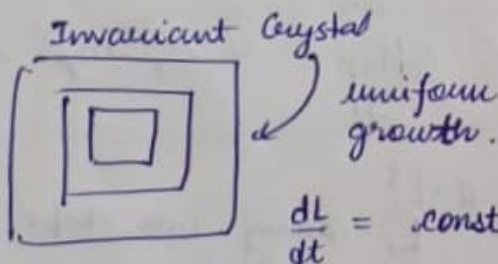 Invariant Crystal
uniform
growth.
dL/dt = const